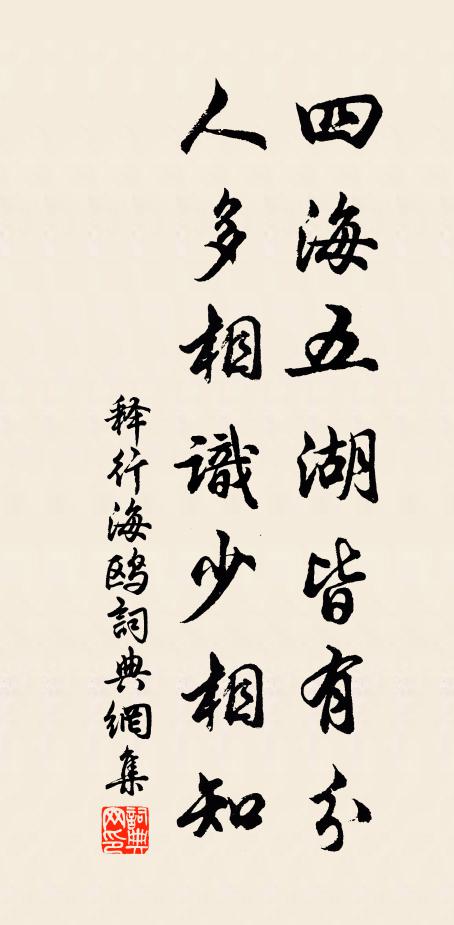 四海五湖皆有分
人多相識少相知
释行海鸥詞典網集
詞典网印